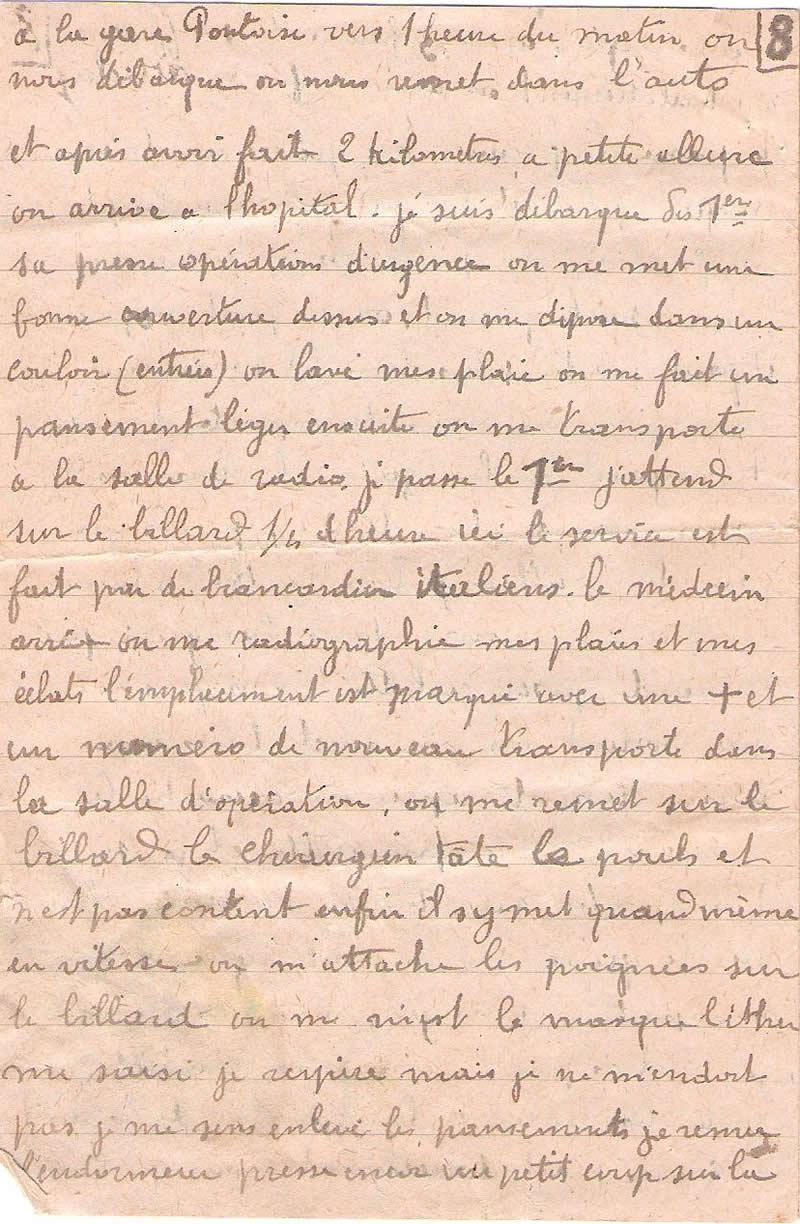 à la gare Pontoise vers 1 heure du matin on 8
nous débarque on nous remet dans l'auto
et après avoir fait 2 kilometres a petite allure
on arrive a l'hopital. jé suis débarque des 1er
sa presse opérations d'urgence on me met une
bonne couverture dessus et on me dipose dans un
couloir (entrées) on lave mes plaie on me fait un
pansement léger ensuite on me transporte
a la salle de radio. je passe le 1er j'attend
sur le billard 1/4 d'heure ici le service est
fait par de brancardier italiens. le médecin
arrive on me radiographie mes plaies et mes
éclats l'emplacement est marqué avec une + et
un numéro de nouveau transporte dans
la salle d'opération, on me remet sur le
billard le chirurgien tâte le pouls et
n'est pas content enfin il s'y met quand même
en vitesse on m'attache les poignees sur
le billard on me met le masque l'éther
me saisi je respire mais je ne m'endort
pas je me sens enlevé les pansements je remue
l'endormeur presse encor un petit coup sur la